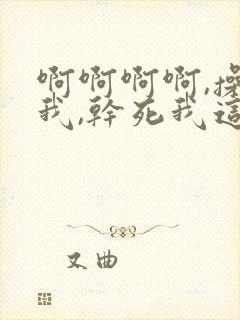 啊啊啊啊,操
我,幹死我這
又曲